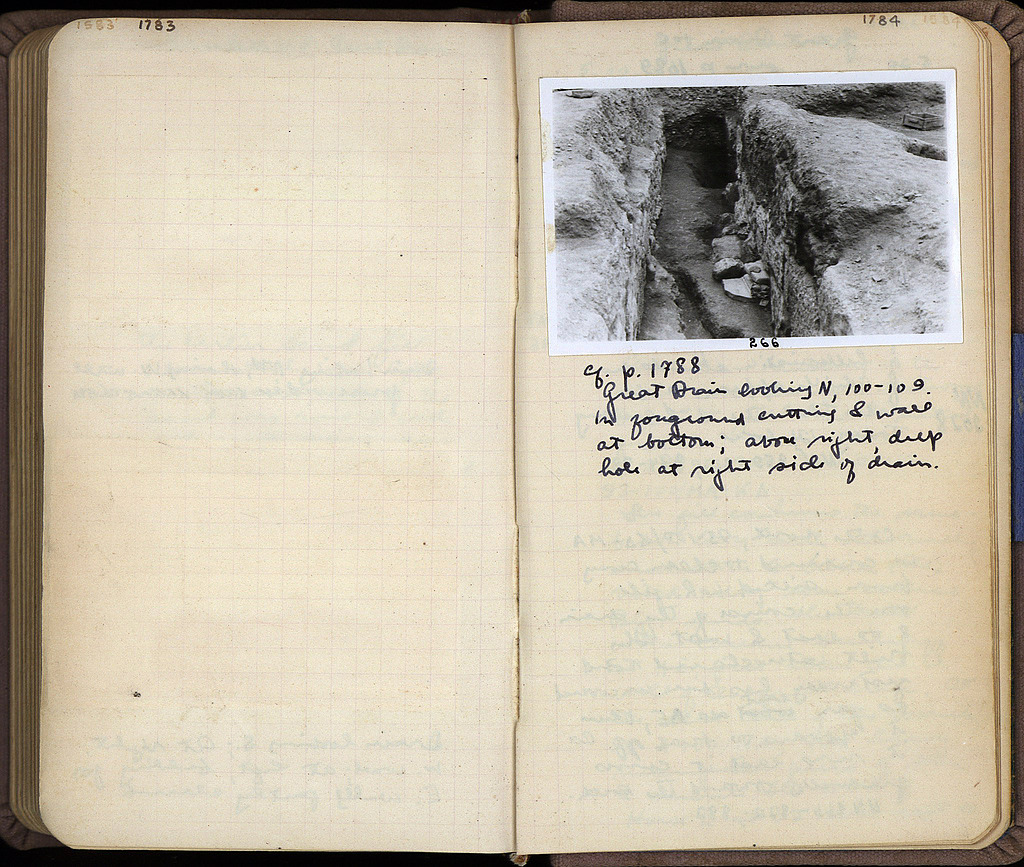 1583 1783
1784 1584
266
cf. p. 1788
Great Drain looking N, 100-109.
In foreground cutting & wall
at bottom; above right, deep
hole at right side of drain.